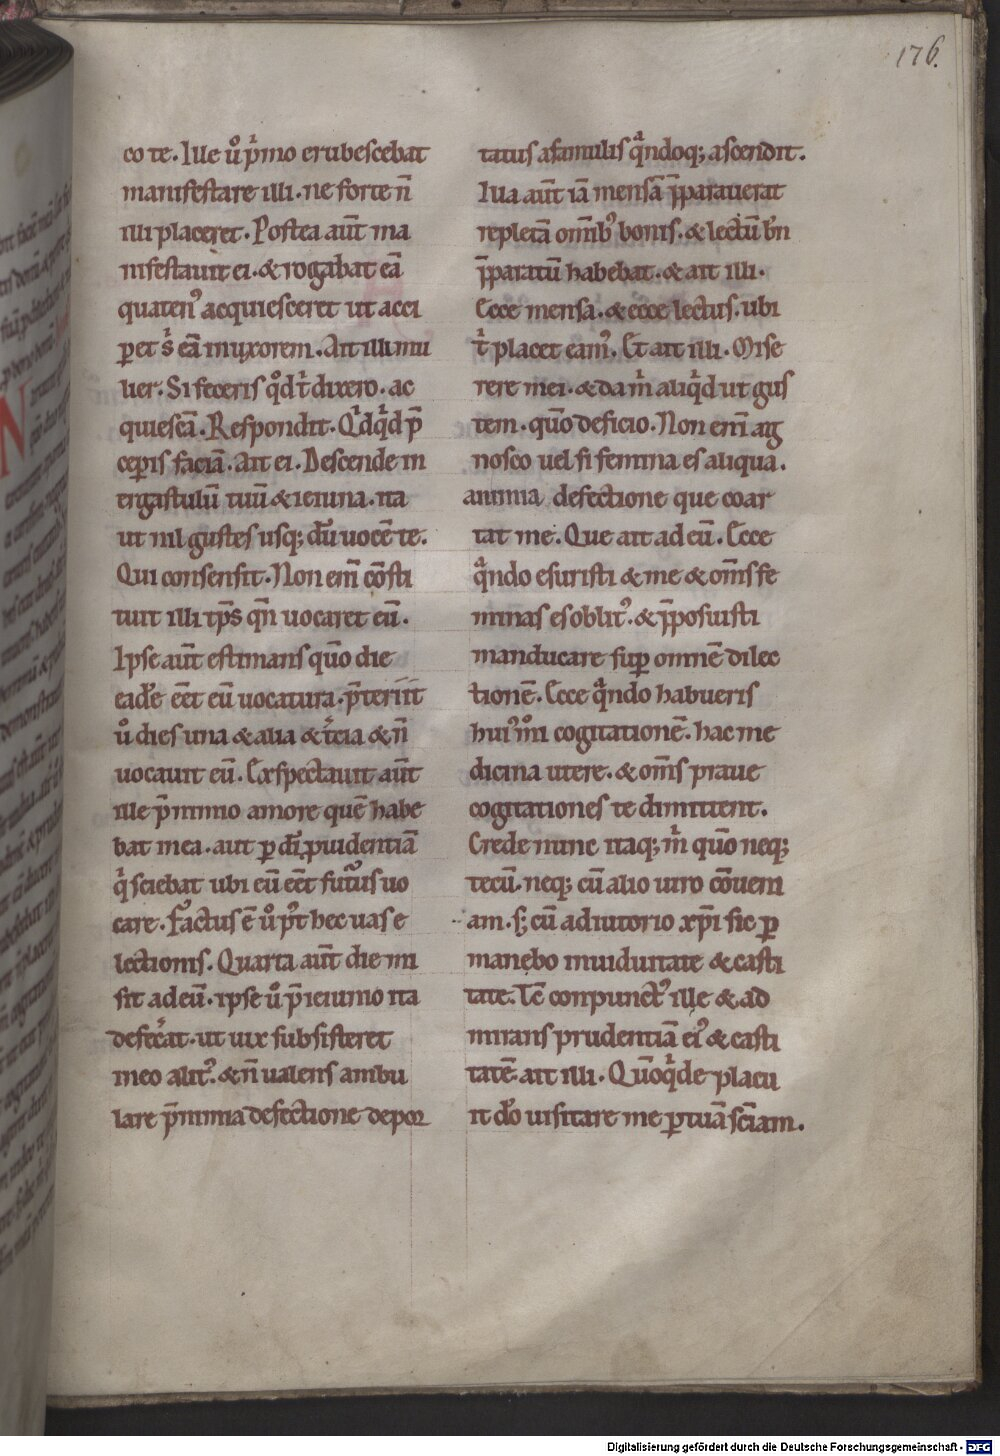 176.
co te. Ille ů p̍mo erubescebat
manifestare illi. ne forte n̄
illi placeret. Postea aut̄ ma
nifestauit ei. & rogabat eā
quaten᾽ acquiesceret ut acci
ꝑet s̍ eā in uxorem. Ait illi mu
lier. Si feceris qͦd t̍ dixero. ac
quiescā. Respondit. Qͥdqͥd p̄
ceꝑis faciā. Ait ei. Descende in
ergastulū tuū & ieiuna. ita
ut nil gustes usq; dū uocē te.
Qui consensit. Non eni̅ cōsti
tuit illi tp̄s qn̄ uocaret eū.
Ipse aut̄ estimans quō die
eadē eēt eū uocatura. p̄teriit
ů dies una & alia & t̍cia & n̄
uocauit eū. Exspectauit aut̄
ille p̄ nimio amore quē habe
bat in ea. aut ꝑ dī ꝓuidentiā
qͥ sciebat ubi eū eēt futur᾽us uo
care. Fact᾽us ē ů p᾽t hec uas e
lectionis. Quarta aut̄ die mi
sit ad eū. ipse ů p̄ ieiunio ita
defec̍at. ut uix subsisteret
in eo alit᾽. & n̄ ualens ambu
lare p̄ nimia defectione depor
tatus a famulis qͣndoq; ascendit.
Illa aut̄ iā mensā p̄parauerat
repletā omīb᾽ bonis. & lectū bn̄
p̄paratū habebat. & ait illi.
Ecce mensa. & ecce lectus. ubi
t̍ placet eam᾽. Et ait illi. Mise
rere mei. & da m̍ aliqͥd ut gus
tem. quō deficio. Non eni̅ ag
nosco uel si femina es aliqua.
animia defectione que coar
tat me. Que ait ad eū. Ecce
qͣndo esuristi & me & om̄s fe
minas es oblit᾽. & p̄posuisti
manducare suꝑ omnē dilec
tionē. Ecce qͣndo habueris
hui᾽mͦi cogitationē. hac me
dicina utere. & om̄s praue
cogitationes te dimittent.
Crede nunc itaq; m̍ quō neq;
tecū. neq; cū alio uiro cōueni
am. s; cū adiutorio xp̄i sic ꝑ
manebo in uiduitate & casti
tate. Tē conpunct᾽ ille & ad
mirans prudentiā ei᾽ & casti
tatē. ait illi. Quōqͥde placu
it dō uisitare me ꝑ tuā sc̄iam.
Digitalisierung gefördert durch die Deutsche Forschungsgemeinschaft - DFG